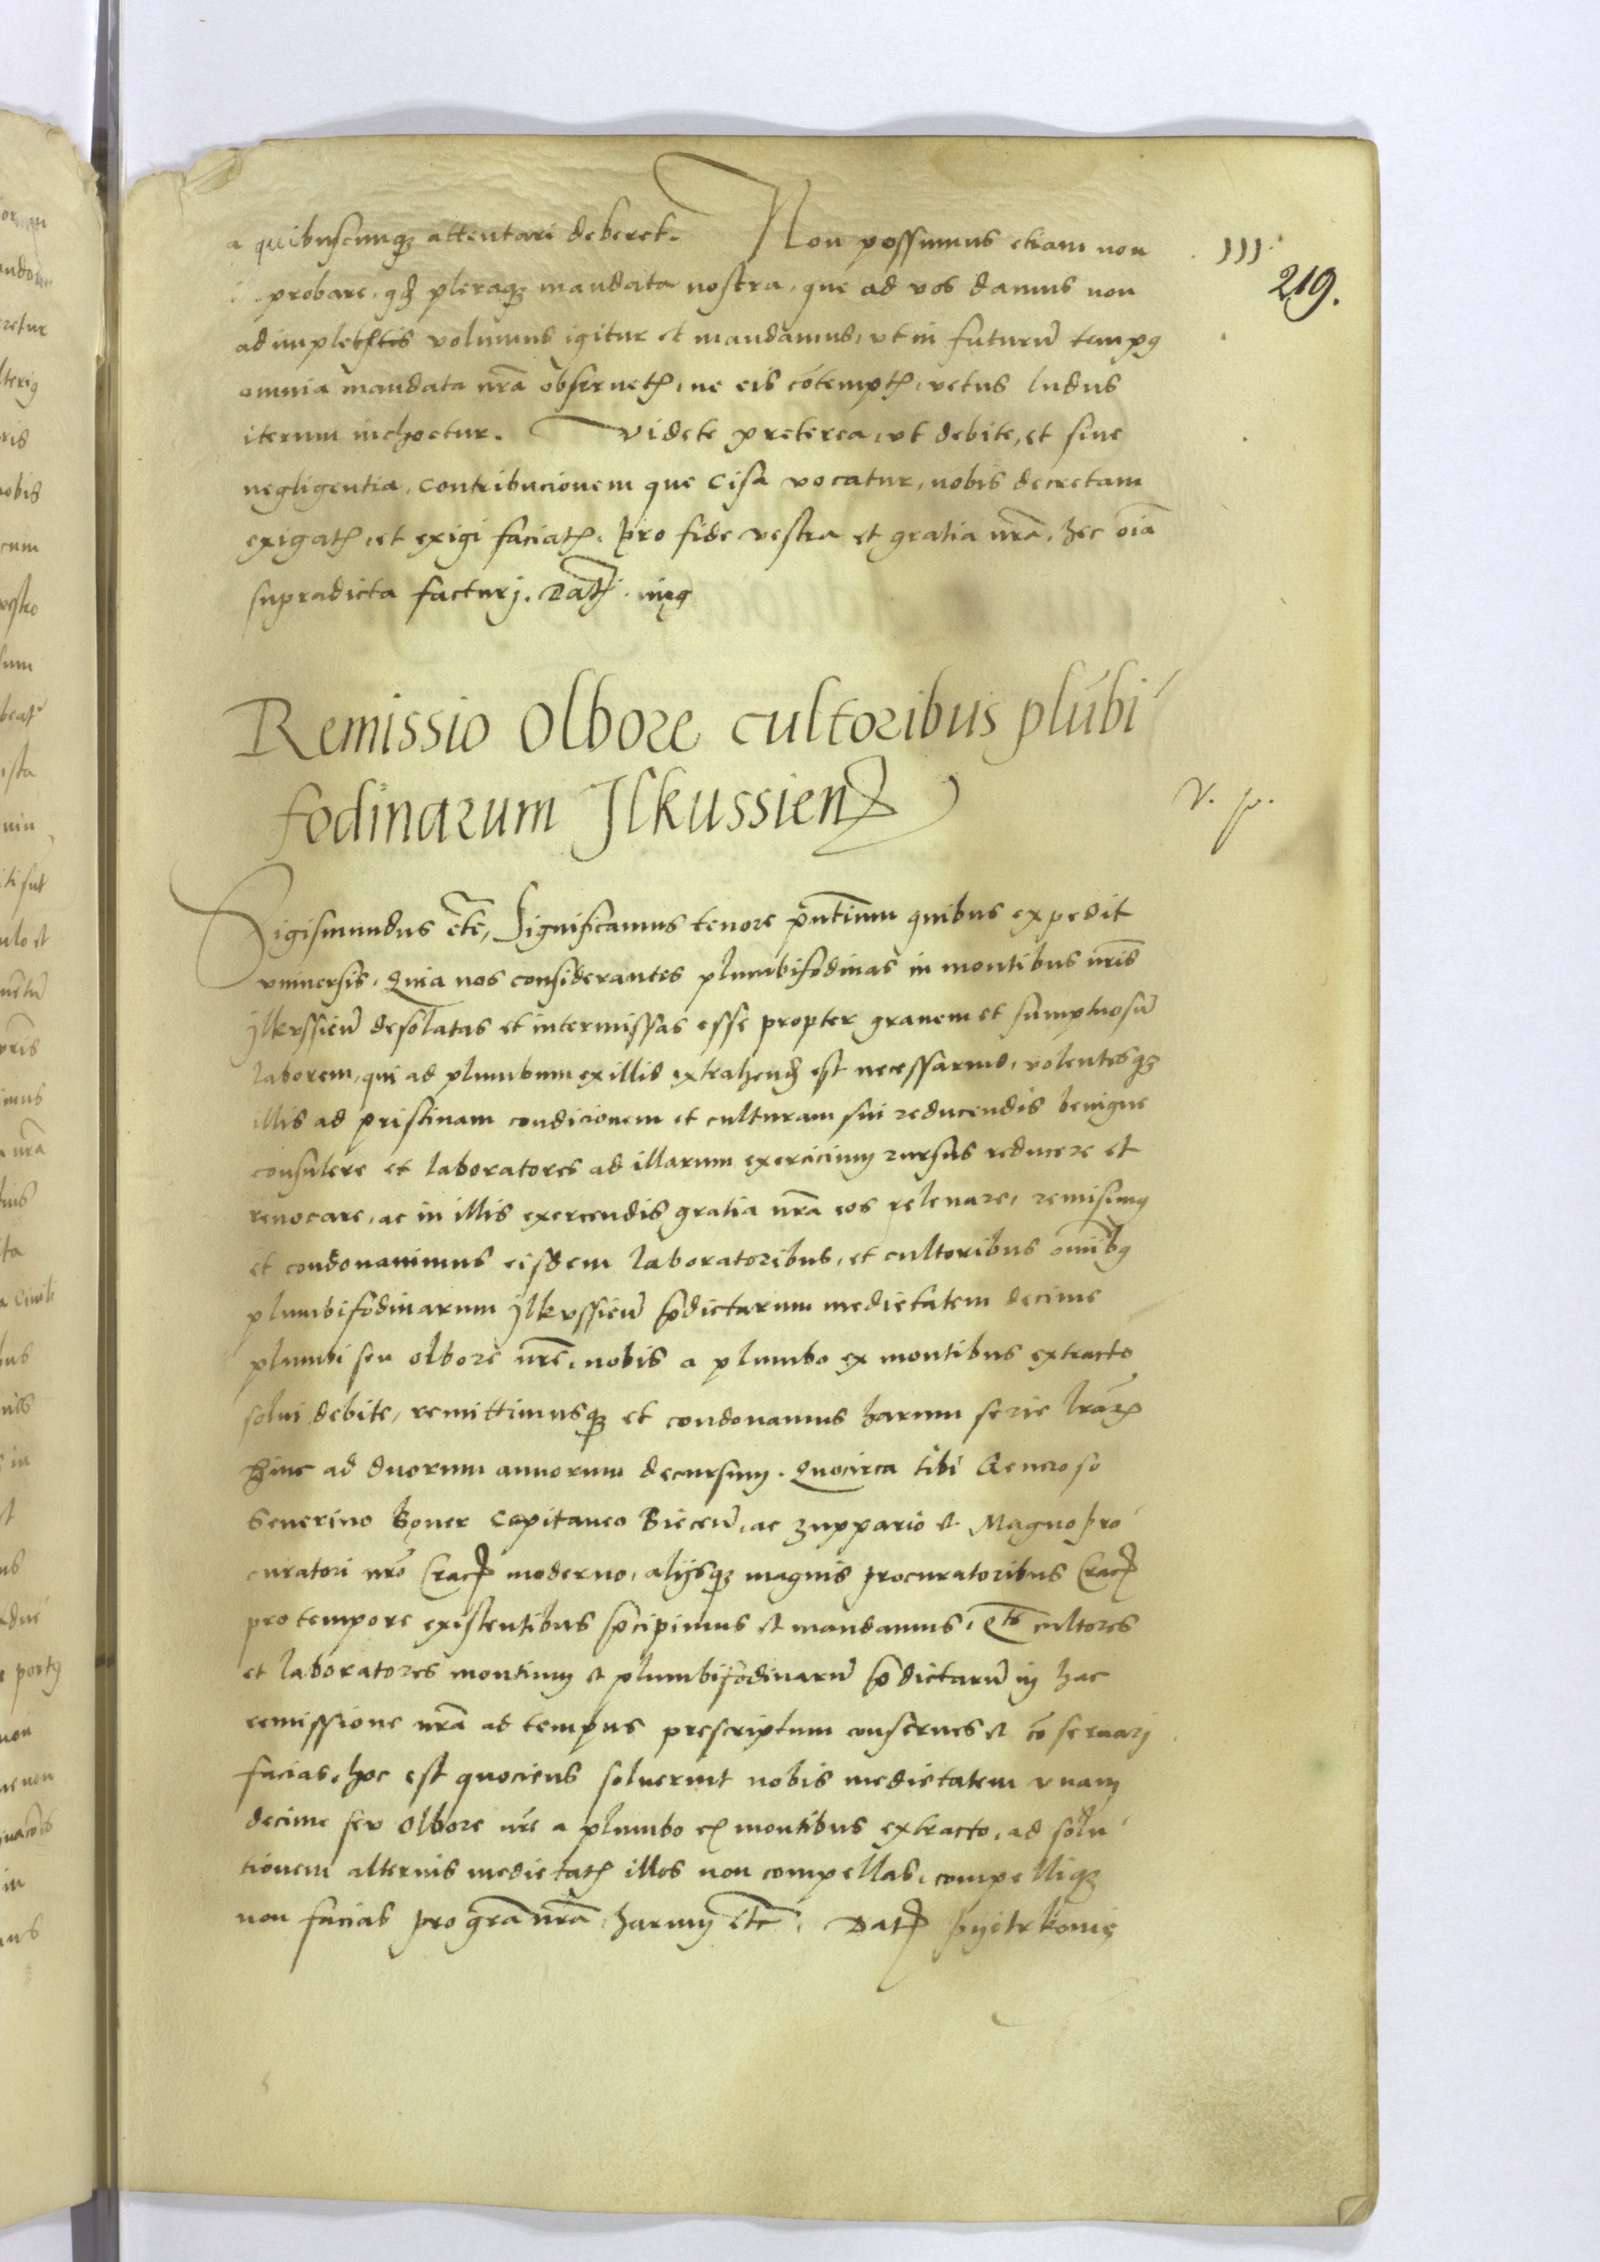 a quibuscunqꝫ attentari deberet. Non possumus etiam non
probare, qđ pleraqꝫ mandata nostra, que ad vos damus non
adimpletis volumus igitur et mandamus, vt in futurū tempꝯ
omnia mandata nrā obseruetꝭ, ne eis cōtemptꝭ, vetus ludus
iterum inchoetur. Videte preterea, vt debite, et sine
negligentia, contribucionem que Cisa vocatur, nobis decretam
exigatꝭ, et exigi faciatꝭ, pro fide vestra et gratia nrā, hec oīa
supradicta facturj. Datꝭ
219.
Remissio olbore cultoribus plūbi
fodinarum Ilkussienꝭ
Sigismundus etc̄, Significamus tenore pn̄tium quibus expedit
vniuersis, Quia nos considerantes plumbifodinas in montibus nrīs
Ilkussien̄ desolatas et intermissas esse propter grauem et sumptuosū
laborem, qui ad plumbum ex illis extrahendꝭ est necessarius, volentesqꝫ
illis ad pristinam condicionem et culturam sui reducendis benigne
consulere et laboratores ad illarum exercicium rursus reducere et
reuocare, ac in illis exercendis gratia nrā eos releuare, remisimꝯ
et condonauimus eisdem laboratoribus, et cultoribus omībꝯ
plumbifodinarum Ilkussien̄ p̄dictarum medietatem decime
plumbi seu olbore nrē, nobis a plumbo ex montibus extracto
solui debite, remittimusqꝫ et condonamus harum serie lrāꝝ
hinc ad duorum annorum decursum. Quocirca tibi Generoso
Seuerino Boner Capitaneo Biecen̄, ac zuppario et Magno pro
curatori nrō Cracꝭ moderno, alijsqꝫ magnis procuratoribus Cracꝭ
pro tempore existentibus p̄cipimus et mandamus, cultores
et laboratores montium et plumbifodinarū p̄dictarū in hac
remissione nrā ad tempus prescriptum conserues et cōseruarj
facias, hoc est quociens soluerint nobis medietatem vnam
decime seu olbore nrē a plumbo ex montibus extracto, ad solu
tionem alterius medietatꝭ illos non compellas, compelliqꝫ
non facias pro grā nrā, harum etc̄. Datꝭ